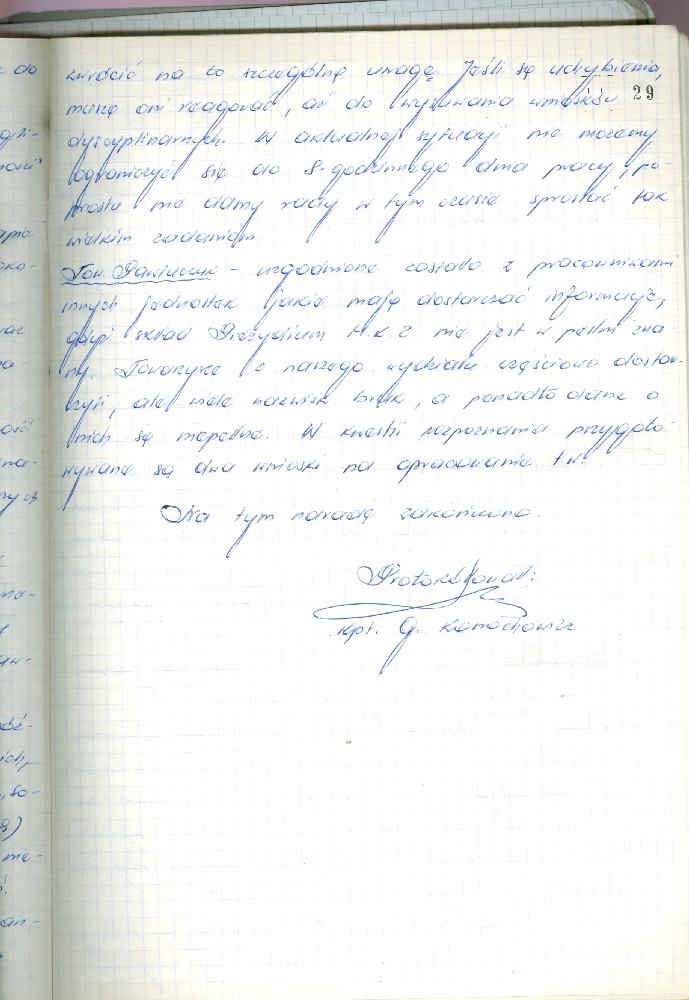 zwrócić na to szczególną uwagę. Jeśli są uchybienia,
muszą oni reagować, aż do wysuwania wniosków 29
dyscyplinarnych. W aktualnej sytuacji nie możemy
ograniczyć się do 8-godzinnego dnia pracy, po-
prostu nie damy rady w tym czasie sprostać tak
wielkim zadaniom.
Tow. Pawluczuk - uzgodnione zostało z pracownikami
innych jednostek jakie mają dostarczać informacje,
gdyż skład Prezydium M.K.Z nie jest w pełni zna-
ny. Towarzysze z naszego wydziału częściowo dostar-
czyli, ale wiele nazwisk brak, a ponadto dane o
nich są niepełne. W kwestii rozpoznania przygoto-
wywane są dwa wnioski na opracowanie t.w.
Na tym naradę zakończono.
Protokółował:
kpt. G.